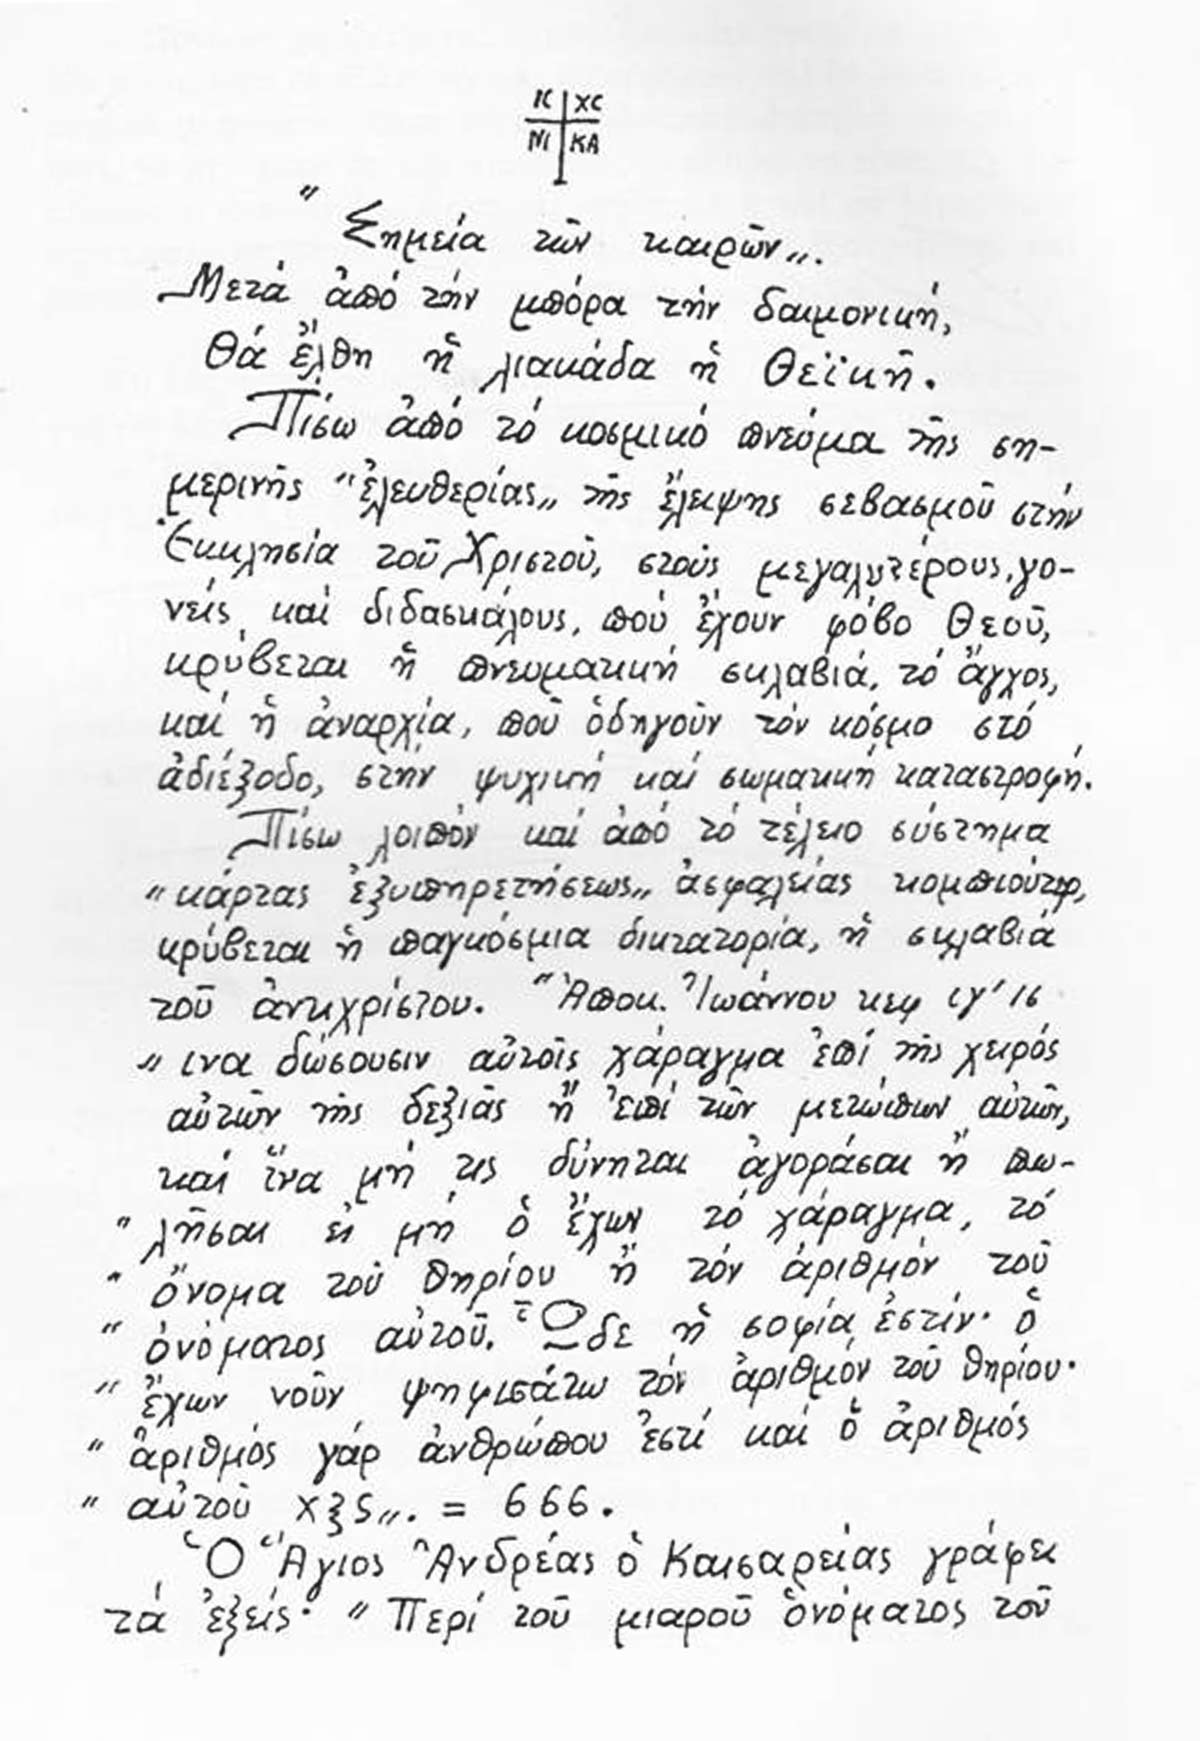 ΙC ΧC
ΝΙ ΚΑ
"Σημεία τῶν καιρῶν„.
Μετά ἀπό τήν μπόρα τήν δαιμονική,
Θά ἔλθη ἡ λιακάδα ἡ Θεϊκή.
Πίσω ἀπό τό κοσμικό πνεύμα τῆς ση-
μερινῆς "ἐλευθερίας„ τῆς ἔλειψης σεβασμοῦ στήν
Ἐκκλησία τοῦ Χριστοῦ, στούς μεγαλυτέρους, γο-
νείς καί διδασκάλους, πού ἔχουν φόβο Θεοῦ,
κρύβεται ἡ πνευματική σκλαβιά, τό ἄγχος,
καί ἡ ἀναρχία, ποῦ ὁδηγοῦν τόν κόσμο στό
ἀδιέξοδο, στήν ψυχική καί σωματική καταστροφή.
Πίσω λοιπόν καί ἀπό τό τέλειο σύστημα
"κάρτας ἐξυπηρετήσεως„ ἀσφαλείας κομπιούτερ,
κρύβεται ἡ παγκόσμια δικτατορία, ἡ σκλαβιά
τοῦ ἀντιχρίστου. "Ἀποκ. Ἰωάννου κεφ ιγ' 16
" ινα δώσουσιν αὐτοῖς χάραγμα ἐπί τῆς χειρός
αὐτῶν τῆς δεξιᾶς ἤ ἐπί τῶν μετώπων αὐτῶν,
καί ἵνα μή τις δύνηται ἀγοράσαι ἤ πω-
" λῆσαι εἰ μή ὁ ἔχων τό χάραγμα, τό
" ὄνομα τοῦ θηρίου ἤ τόν ἀριθμόν τοῦ
" ὀνόματος αὐτοῦ. Ὧδε ἡ σοφία ἐστίν· ὁ
" ἔχων νοῦν ψηφισάτω τόν ἀριθμόν τοῦ θηρίου·
" ἀριθμός γάρ ἀνθρώπου ἐστί καί ὁ ἀριθμός
" αὐτοῦ χξς„. = 666.
Ὁ Ἅγιος Ἀνδρέας ὁ Καισαρείας γράφει
τά ἐξεῖς· " Περί τοῦ μιαροῦ ὀνόματος τοῦ